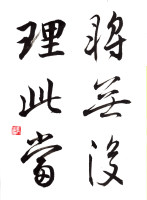 將無
理此當